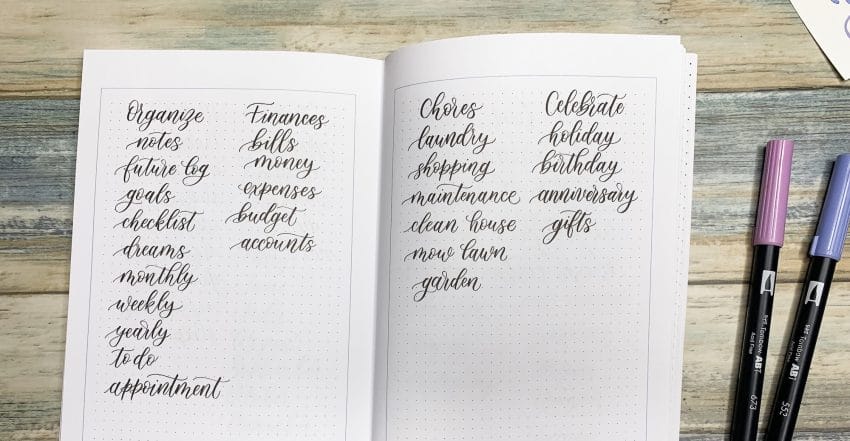 Organize
notes
future log
goals
checklist
dreams
monthly
weekly
yearly
to do
appointment
Finances
bills
money
expenses
budget
accounts
Chores
laundry
shopping
maintenance
clean house
mow lawn
garden
Celebrate
holiday
birthday
anniversary
gifts
Tombow ABT
Acid Free
673
Tombow ABT
552